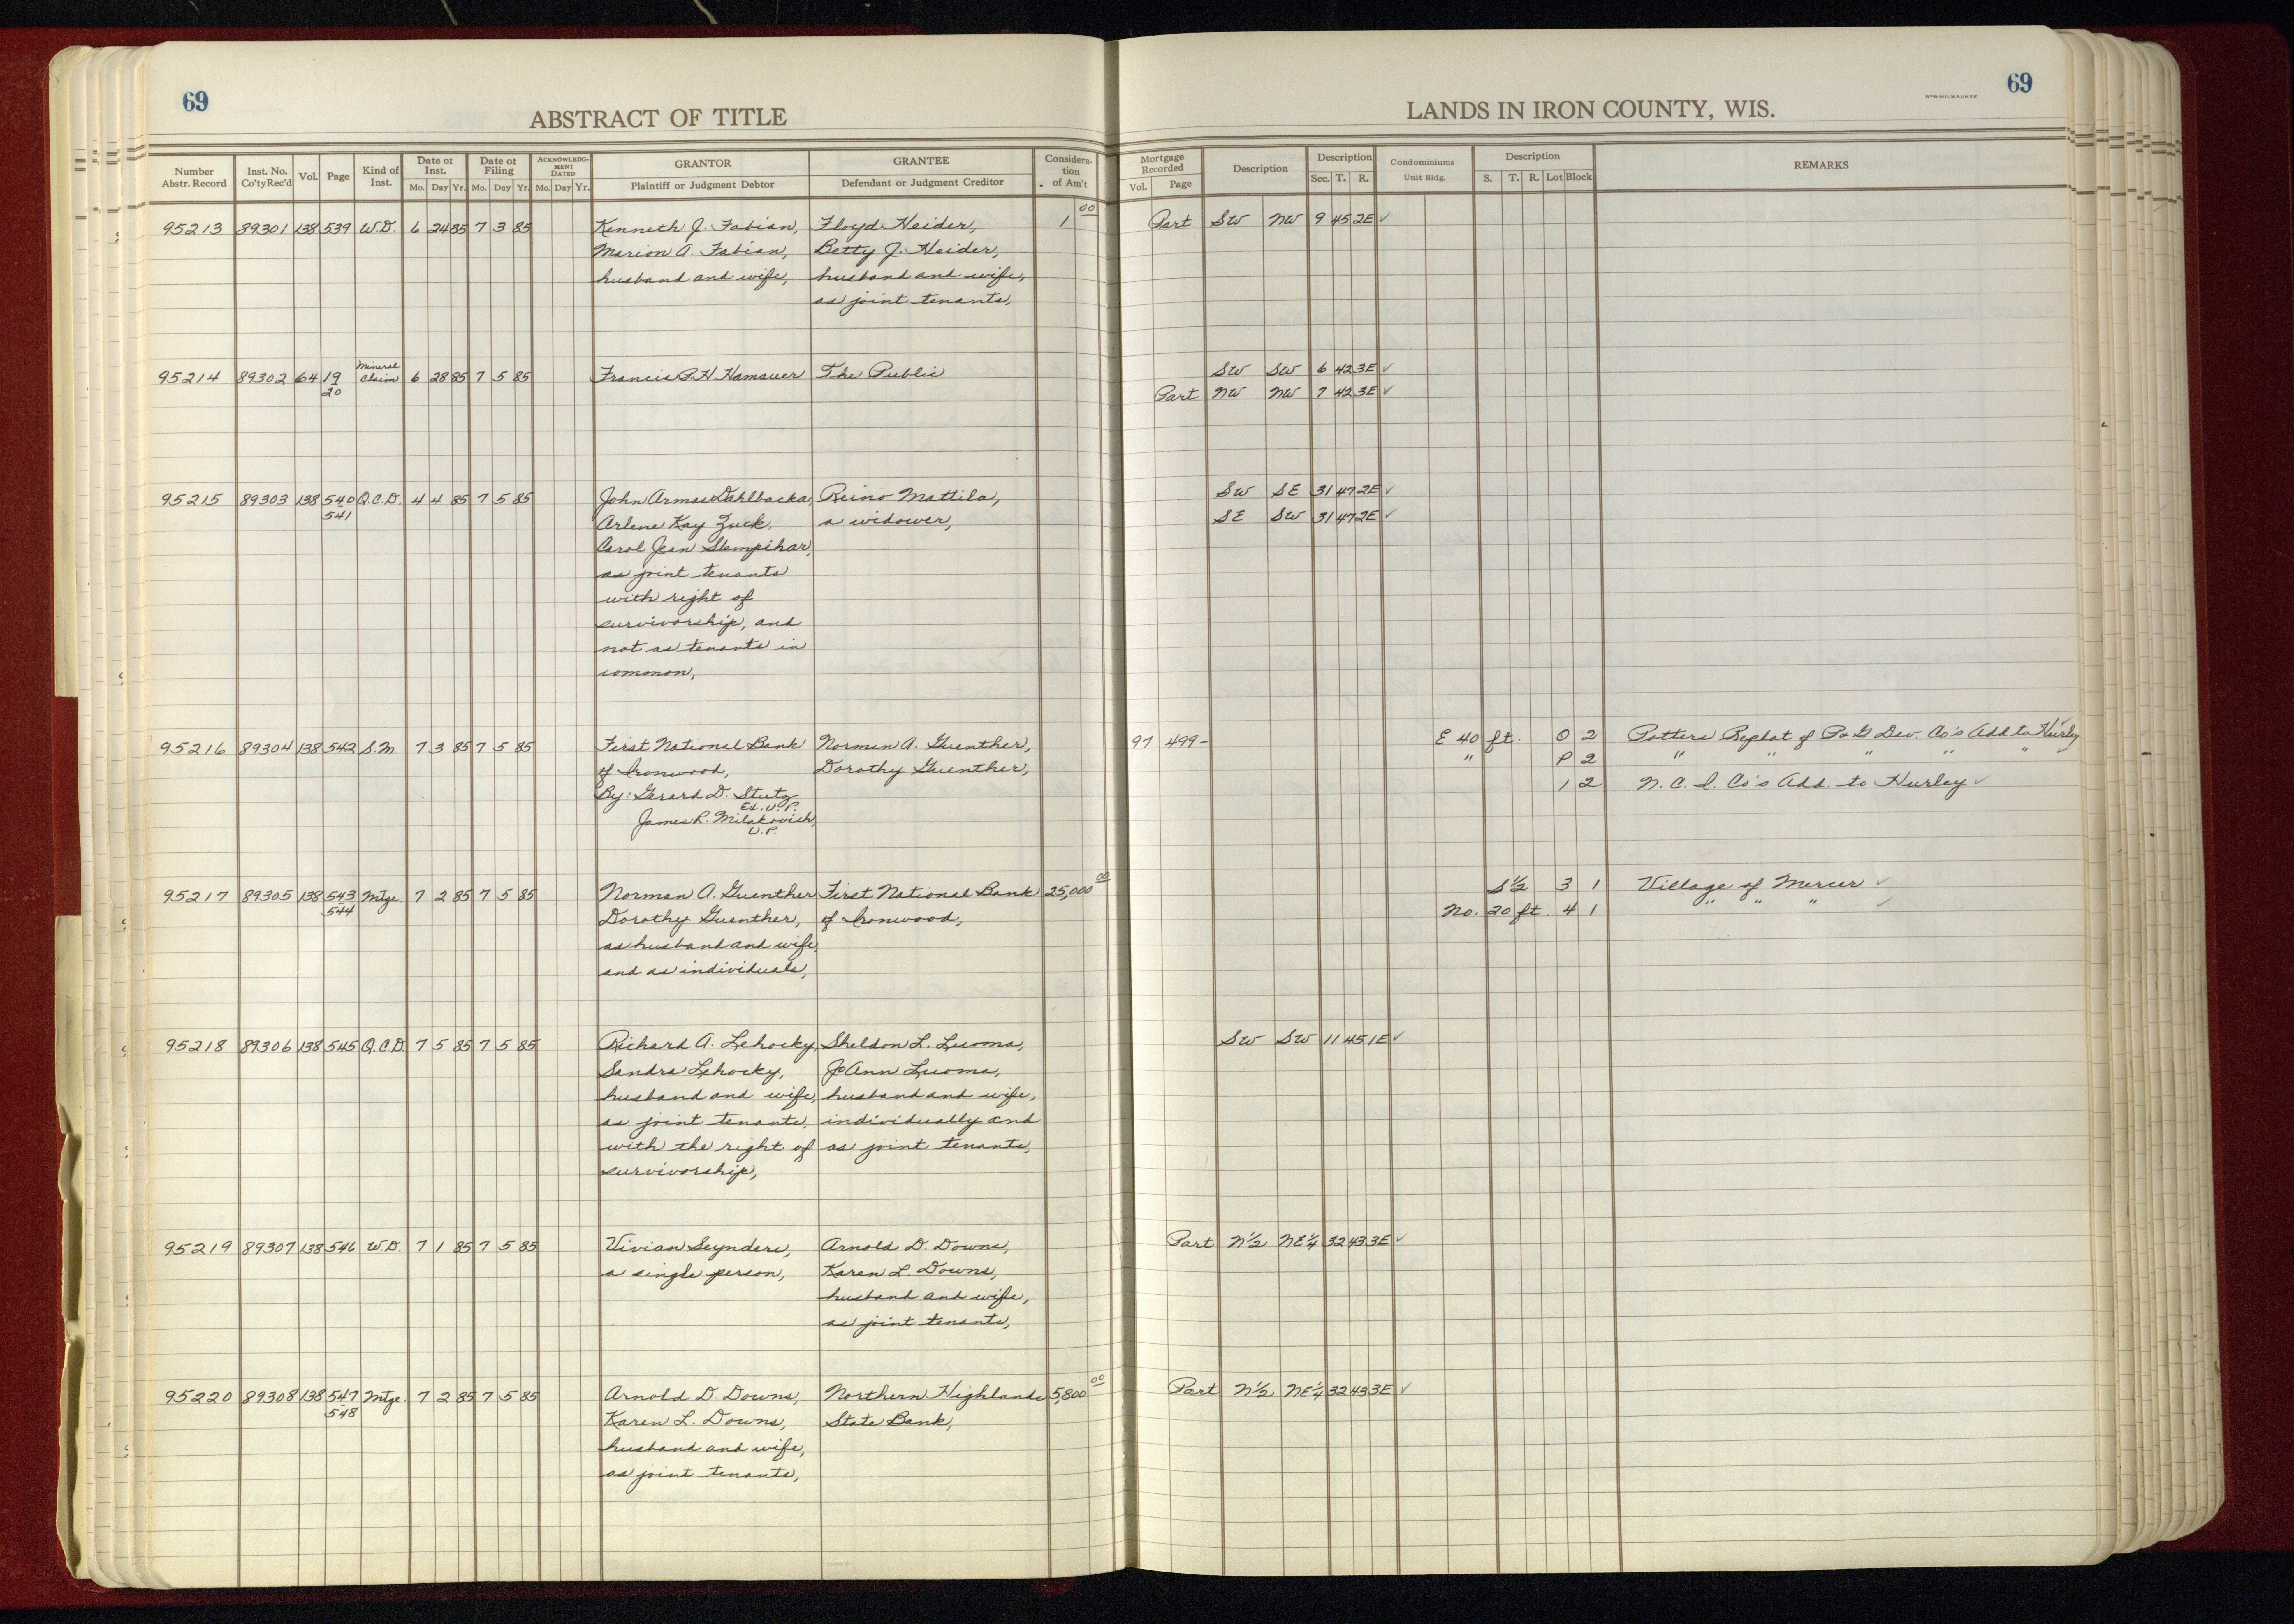 69
ABSTRACT OF TITLE
Number Abstr. Record Inst. No. Co'tyRec'd Vol. Page Kind of Inst. Date of Inst. Mo. Day Yr. Date of Filing Mo. Day Yr. ACKNOWLEDGMENT DATED Mo. Day Yr. GRANTOR Plaintiff or Judgment Debtor GRANTEE Defendant or Judgment Creditor Consideration of Am't
95213 89301 138 539 W.D. 6 24 85 7 3 85 Kenneth J. Fabian, Floyd Heider, 1 00
Marion A. Fabian, Betty J. Heider,
husband and wife, husband and wife,
as joint tenants,
95214 89302 64 19 20 Mineral Claim 6 28 85 7 5 85 Francis P.H. Hamauer The Public
95215 89303 138 540 541 Q.C.D. 4 4 85 7 5 85 John Armas Dahlbacka, Reino Mattila,
Arlene Kay Zuck, a widower,
Carol Jean Stempihar,
as joint tenants
with right of
survivorship, and
not as tenants in
common,
95216 89304 138 542 S.M. 7 3 85 7 5 85 First National Bank Norman A. Guenther,
of Ironwood, Dorothy Guenther,
By: Gerard D. Stutz
Ex. V.P.
James R. Milakovich,
V.P.
95217 89305 138 543 544 Mtge. 7 2 85 7 5 85 Norman A. Guenther First National Bank 25,000 00
Dorothy Guenther, of Ironwood,
as husband and wife,
and as individuals,
95218 89306 138 545 Q.C.D. 7 5 85 7 5 85 Richard A. Lehocky, Sheldon L. Luoma,
Sandra Lehocky, JoAnn Luoma,
husband and wife, husband and wife,
as joint tenants, individually and
with the right of as joint tenants,
survivorship,
95219 89307 138 546 W.D. 7 1 85 7 5 85 Vivian Seynders, Arnold D. Downs,
a single person, Karen L. Downs,
husband and wife,
as joint tenants,
95220 89308 138 547 548 Mtge. 7 2 85 7 5 85 Arnold D. Downs, Northern Highlands 5,800 00
Karen L. Downs, State Bank,
husband and wife,
as joint tenants,
69
WPB-MILWAUKEE
LANDS IN IRON COUNTY, WIS.
Mortgage Recorded Vol. Page Description Description Sec. T. R. Condominiums Unit Bldg. Description S. T. R. Lot Block REMARKS
Part SW NW 9 45 2E ✓
SW SW 6 42 3E ✓
Part NW NW 7 42 3E ✓
SW SE 31 47 2E ✓
SE SW 31 47 2E ✓
97 499- E 40 ft. O 2 Potters Replat of P & G Dev. Co's Add to Hurley ✓
" P 2 " " " " "
1 2 N.C.I. Co's Add. to Hurley ✓
S½ 3 1 Village of Mercer ✓
No. 20 ft. 4 1 " " " ✓
SW SW 11 45 1E ✓
Part N½ NE¼ 32 43 3E ✓
Part N½ NE¼ 32 43 3E ✓